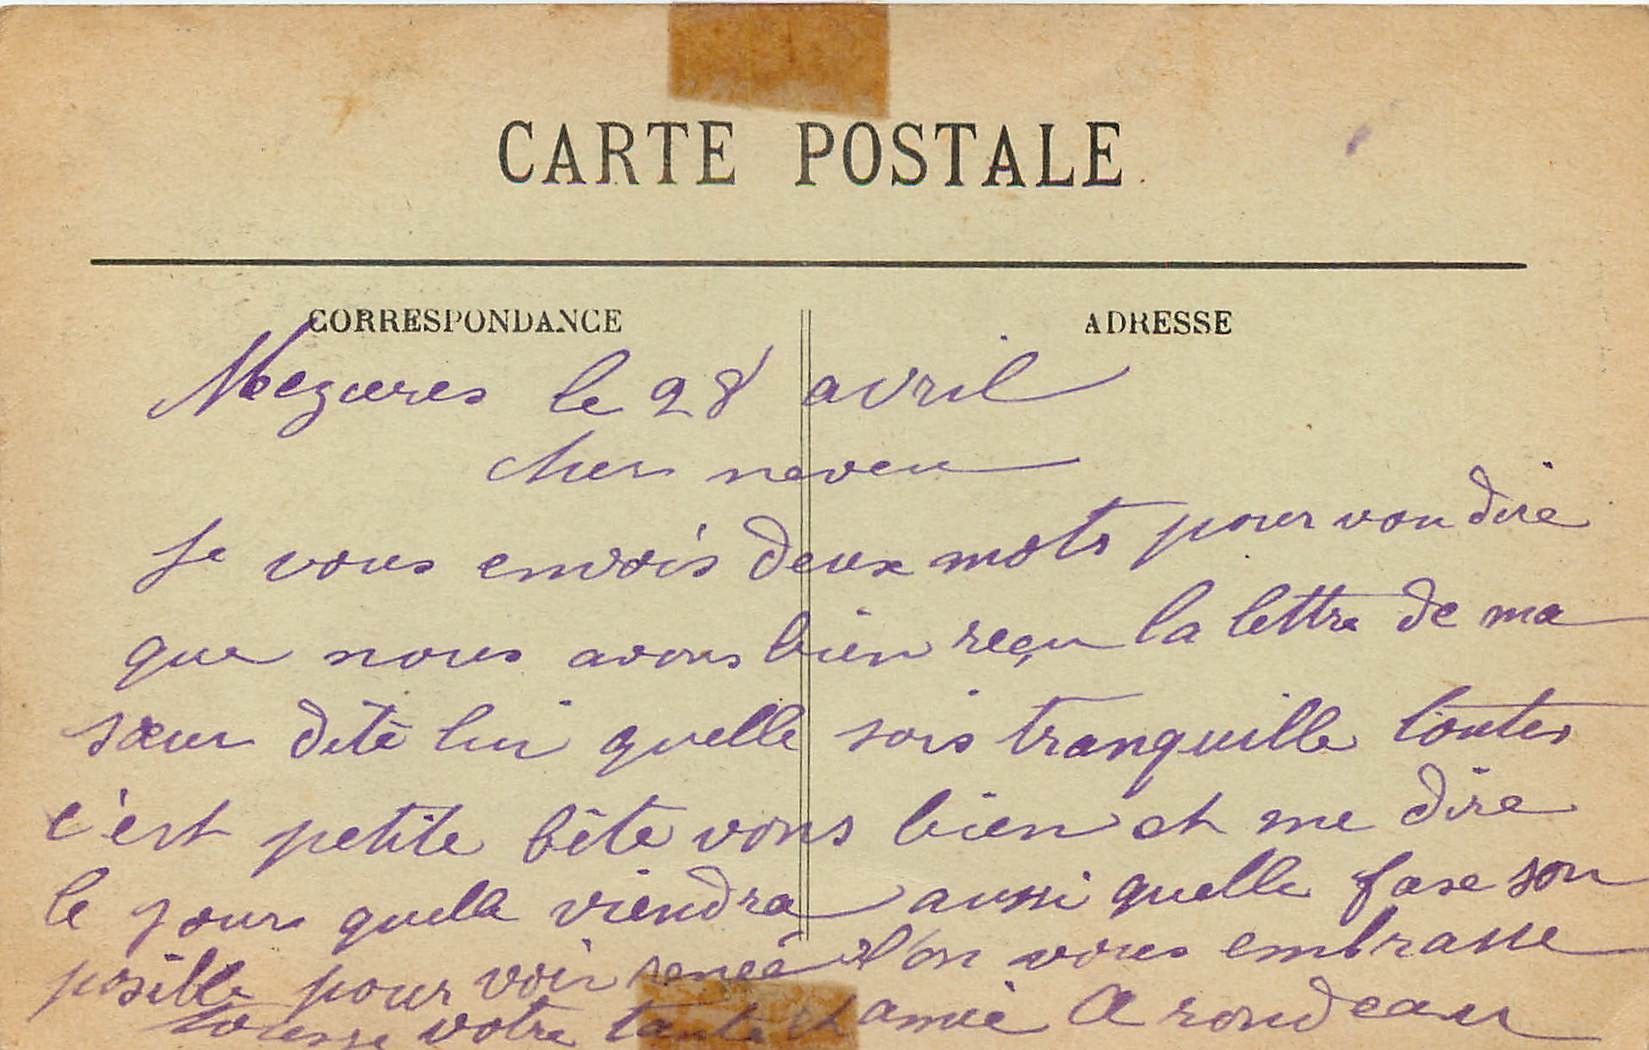 CARTE POSTALE
CORRESPONDANCE
ADRESSE
Mezieres le 28 avril
cher neveu
Je vous envois deux mots pour vou dire
que nous avons bien reçu la lettre de ma
sœur dite lui quelle sois tranquille toutes
c'est petite bête vons bien et me dire
le jour quelle viendra aussi quelle fase son
posible pour voir renée l'on vous embrasse
votre tante et amie A rondeau